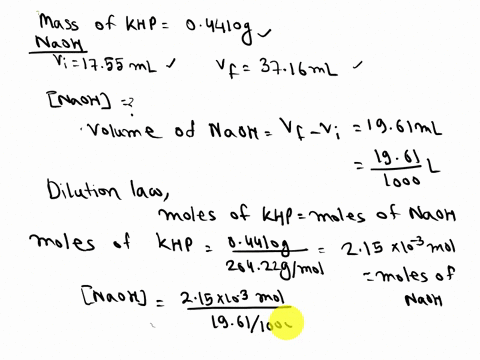 Mass of KHP = 0.4410g ✓
NaOH
Vi = 17.55 mL ✓ Vf = 37.16 mL ✓
[NaOH] = ?
. Volume od NaOH = Vf - Vi = 19.61 mL
= 19.61/1000 L
Dilution law,
moles of KHP = moles of NaOH
moles of KHP = 0.4410g/204.22g/mol = 2.15 × 10⁻³ mol
= moles of NaOH
[NaOH] = 2.15 × 10⁻³ mol/19.61/1000